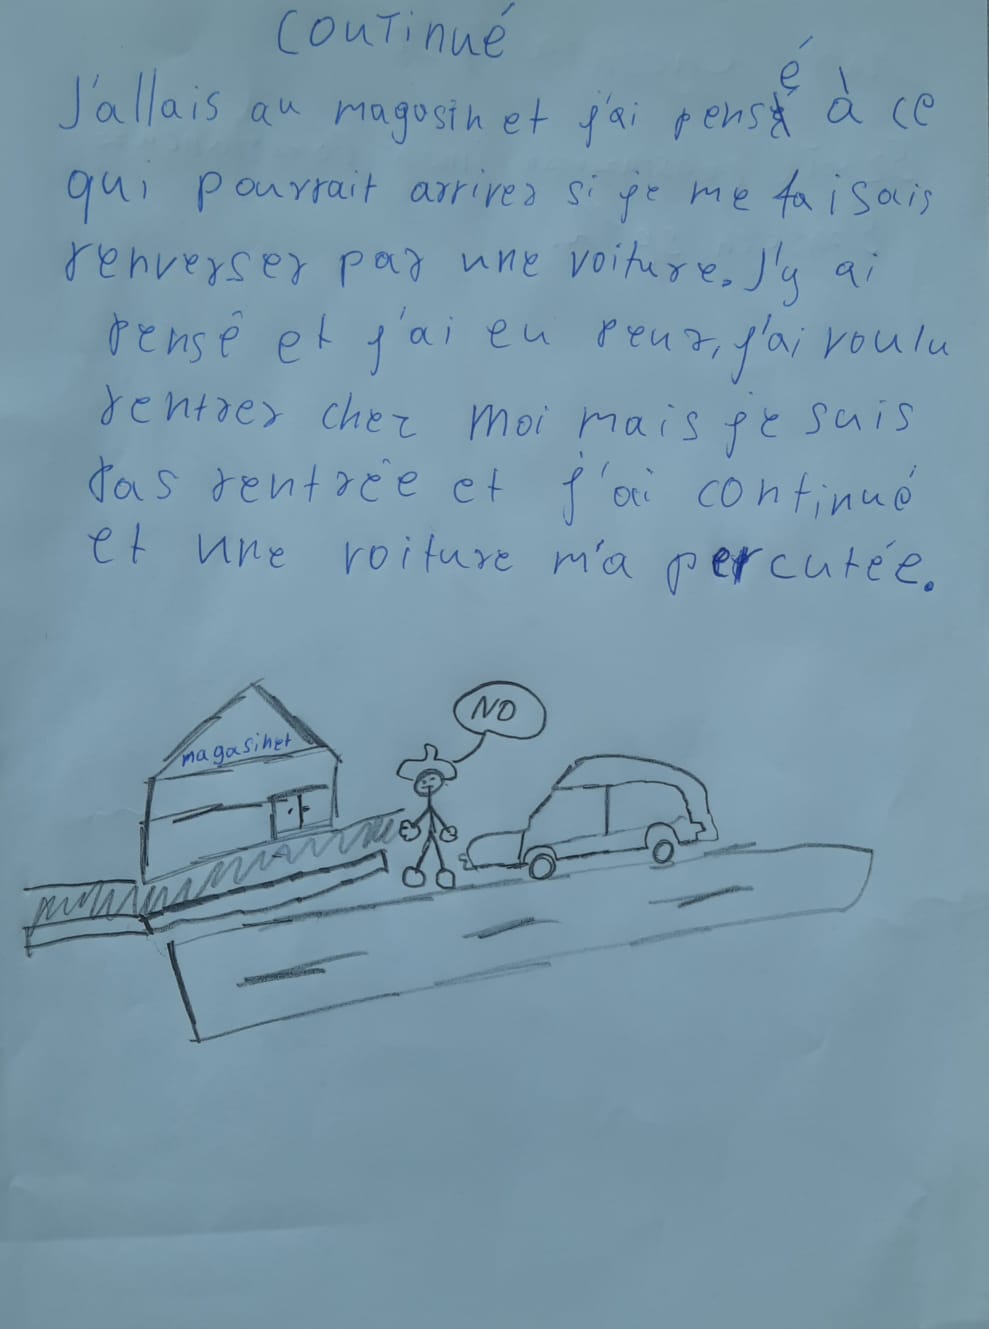 continué
J'allais au magasin et j'ai pensé à ce
qui pourrait arriver si je me faisais
renverser par une voiture. J'y ai
pensé et j'ai eu peur, j'ai voulu
rentrer chez moi mais je suis
pas rentrée et j'ai continué
et une voiture m'a percutée.
NO
magasinet